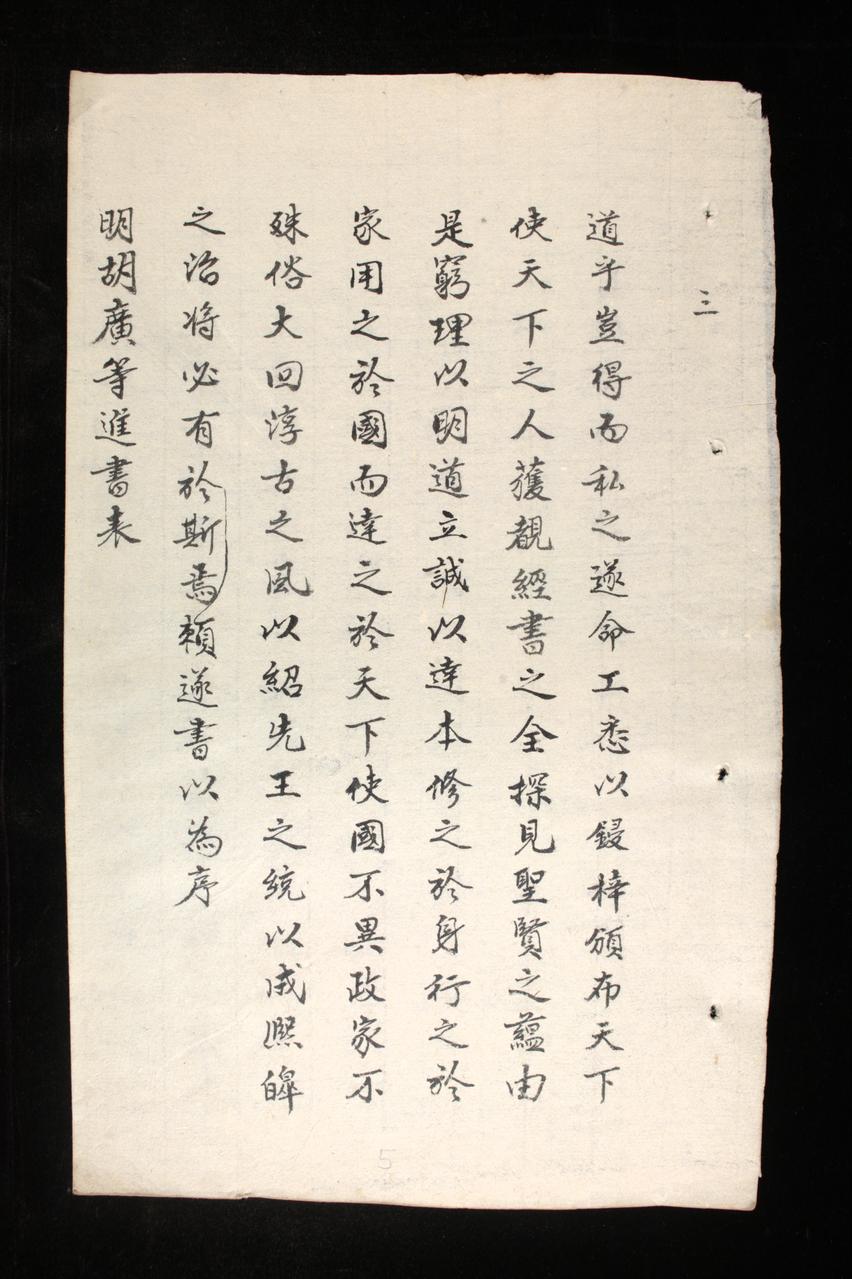 三
道乎豈得而私之遂命工悉以鋟梓頒布天下
使天下之人獲覩經書之全探見聖賢之蘊由
是窮理以明道立誠以達本修之於身行之於
家用之於國而達之於天下使國不異政家不
殊俗大回淳古之風以紹先王之統以成熙皞
之治将必有於斯焉頼遂書以為序
明胡廣等進書表
5